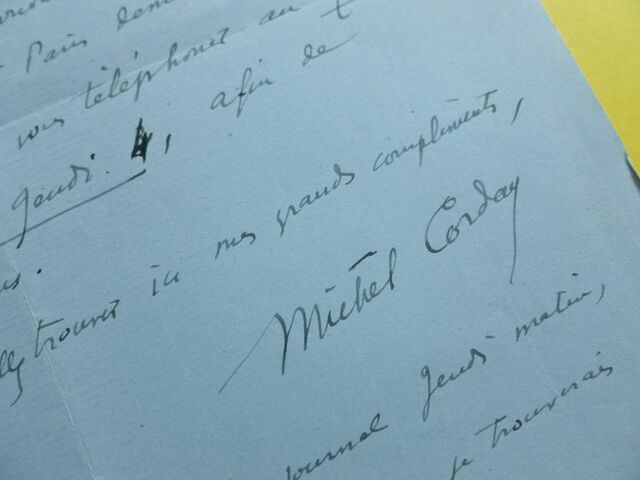 Paris
vous téléphoner au
jeudi 4, afin de
trouvez ici mes grands compliments,
Michel Corday
journal jeudi matin,
je trouverais